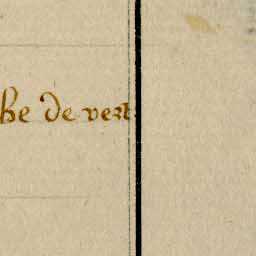 he de vert